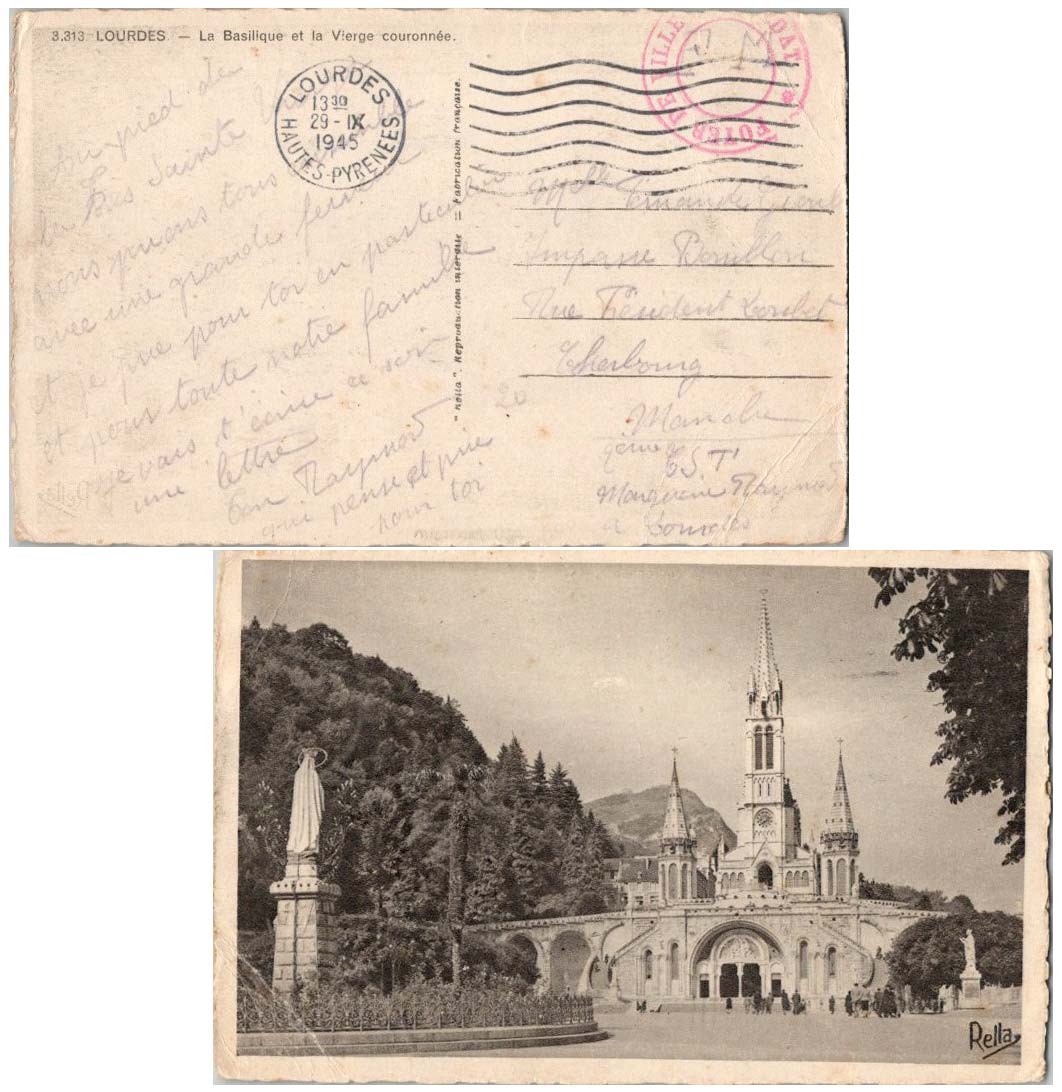 3.313 LOURDES. — La Basilique et la Vierge couronnée.
LOURDES
13 30
29 - IX
1945
HAUTES-PYRENEES
FOYER DE VILLE
Au pied de
la Très Sainte Vierge
nous prions tous ensemble
avec une grande ferveur
et je prie pour toi en particulier
et pour toute notre famille
je vais t'écrire ce soir
une lettre
Ton Raymond
qui pense et prie
pour toi
"Rella". Reproduction interdite = Fabrication française.
Melle
Impasse Bouillon
Rue Président Loubet
Cherbourg
Manche
20
Raymond
à Lourdes
Rella